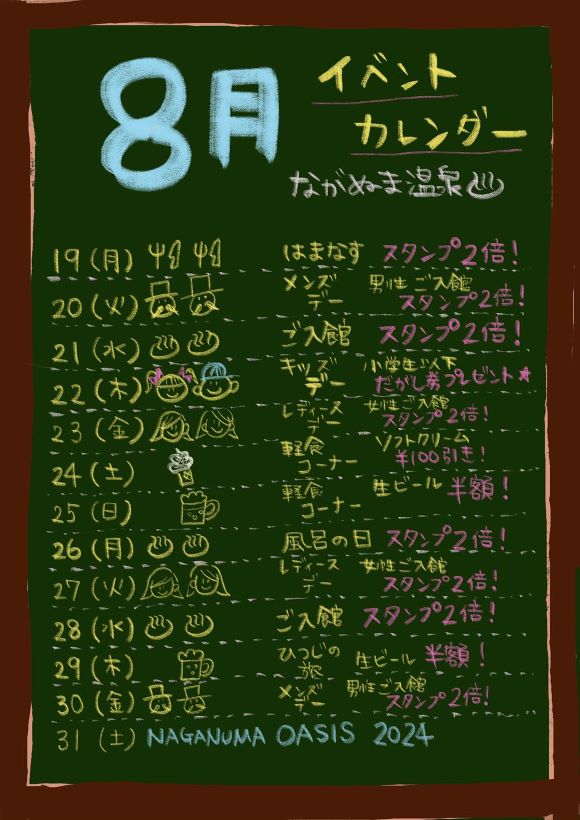 8月
イベント
カレンダー
ながぬま温泉♨
19(月) はまなす スタンプ2倍!
20(火) メンズデー 男性ご入館 スタンプ2倍!
21(水) ご入館 スタンプ2倍!
22(木) キッズデー 小学生以下 だがし券プレゼント☆
23(金) レディースデー 女性ご入館 スタンプ2倍!
24(土) 軽食コーナー ソフトクリーム ¥100引き!
25(日) 軽食コーナー 生ビール 半額!
26(月) 風呂の日 スタンプ2倍!
27(火) レディースデー 女性ご入館 スタンプ2倍!
28(水) ご入館 スタンプ2倍!
29(木) ひつじの旅 生ビール 半額!
30(金) メンズデー 男性ご入館 スタンプ2倍!
31(土) NAGANUMA OASIS 2024